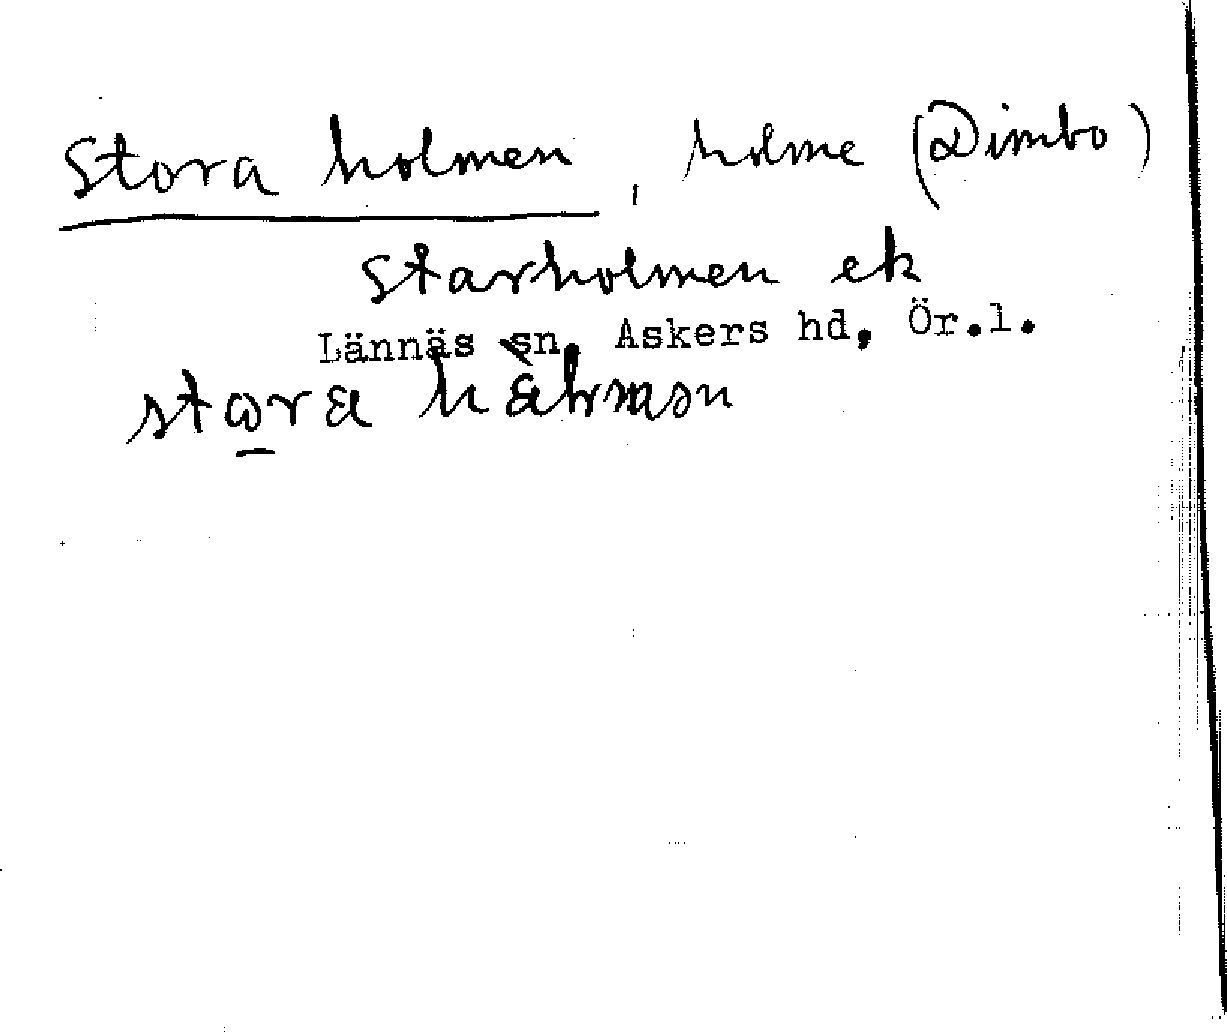 Stora holmen, holme (Dimbo)
Starholmen ek
Lännäs sn, Askers hd, Ör.l.